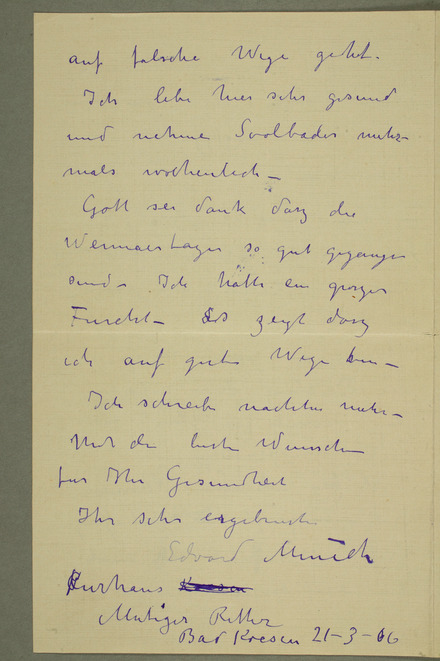 auf falsche Wege gehet.
Ich lebe hier sehr gesund
und nehme Soolbader mehr-
mals wochentlich –
Gott sei dank dasz die
Weimaertager so gut gegangen
sind. Ich hatte ein groszes
Furcht – Es zeigt dasz
ich auf guten Wege bin –
Ich schreibe nachtes mehr –
Mit den besten Wunschen
fur Ihr Gesundheit
Ihr sehr ergebenste
Edvard Munch
Kurhaus Koesen
Mutiger Ritter
Bad Koesen 21–3–06